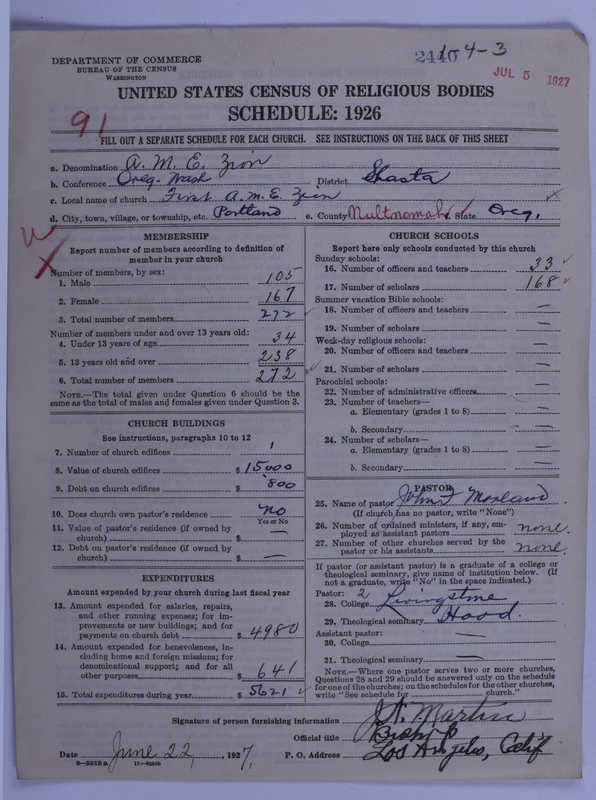 2440 1-4-3
DEPARTMENT OF COMMERCE
BUREAU OF THE CENSUS
WASHINGTON
JUL 5 1927
UNITED STATES CENSUS OF RELIGIOUS BODIES
SCHEDULE: 1926
91
FILL OUT A SEPARATE SCHEDULE FOR EACH CHURCH. SEE INSTRUCTIONS ON THE BACK OF THIS SHEET
a. Denomination A. M. E. Zion
b. Conference Oreg-Wash District Shasta
c. Local name of church First A.M.E. Zion
d. City, town, village, or township, etc. Portland e. County Multnomah f. State Oreg.
MEMBERSHIP
Report number of members according to definition of
member in your church
Number of members, by sex:
1. Male 105
2. Female 167
3. Total number of members 272
Number of members under and over 13 years old:
4. Under 13 years of age 34
5. 13 years old and over 238
6. Total number of members 272
NOTE.—The total given under Question 6 should be the
same as the total of males and females given under Question 3.
CHURCH BUILDINGS
See instructions, paragraphs 10 to 12
7. Number of church edifices 1
8. Value of church edifices $15000
9. Debt on church edifices $800
10. Does church own pastor's residence? No
Yes or No
11. Value of pastor's residence (if owned by
church) $ —
12. Debt on pastor's residence (if owned by
church) $ —
EXPENDITURES
Amount expended by your church during last fiscal year
13. Amount expended for salaries, repairs,
and other running expenses; for im-
provements or new buildings; and for
payments on church debt $4980
14. Amount expended for benevolences, in-
cluding home and foreign missions; for
denominational support; and for all
other purposes $641
15. Total expenditures during year $5621
CHURCH SCHOOLS
Report here only schools conducted by this church
Sunday schools:
16. Number of officers and teachers 33
17. Number of scholars 168
Summer vacation Bible schools:
18. Number of officers and teachers —
19. Number of scholars —
Week-day religious schools:
20. Number of officers and teachers —
21. Number of scholars —
Parochial schools:
22. Number of administrative officers —
23. Number of teachers—
a. Elementary (grades 1 to 8) —
b. Secondary —
24. Number of scholars—
a. Elementary (grades 1 to 8) —
b. Secondary —
PASTOR
25. Name of pastor John F Moreland
(If church has no pastor, write "None")
26. Number of ordained ministers, if any, em-
ployed as assistant pastors none.
27. Number of other churches served by the
pastor or his assistants none.
If pastor (or assistant pastor) is a graduate of a college or
theological seminary, give name of institution below. (If
not a graduate, write "No" in the space indicated.)
Pastor: 2
28. College Livingstone
29. Theological seminary Hood.
Assistant pastor:
30. College —
31. Theological seminary —
NOTE.—Where one pastor serves two or more churches,
Questions 28 and 29 should be answered only on the schedule
for one of the churches; on the schedules for the other churches,
write "See schedule for church."
Signature of person furnishing information J. W. Martin
Official title Bishop
Date June 22, 1927. P. O. Address Los Angeles, Calif